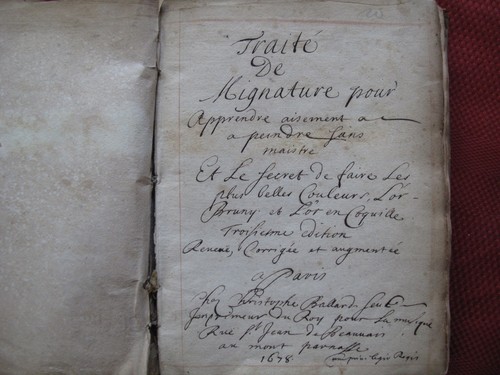 Traité
De
Mignature pour
Apprendre aisement a
a peindre sans
maistre
Et Le secret de faire Les
plus belles Couleurs, L'or
Bruny et L'or en Coquille
Troisiesme Edition
Reveuë, Corrigée et augmentée
a Paris
Chez Christophe Ballard seul
Imprimeur du Roy pour La musique
Rue St Jean de Beauvais
au mont parnasse
1678